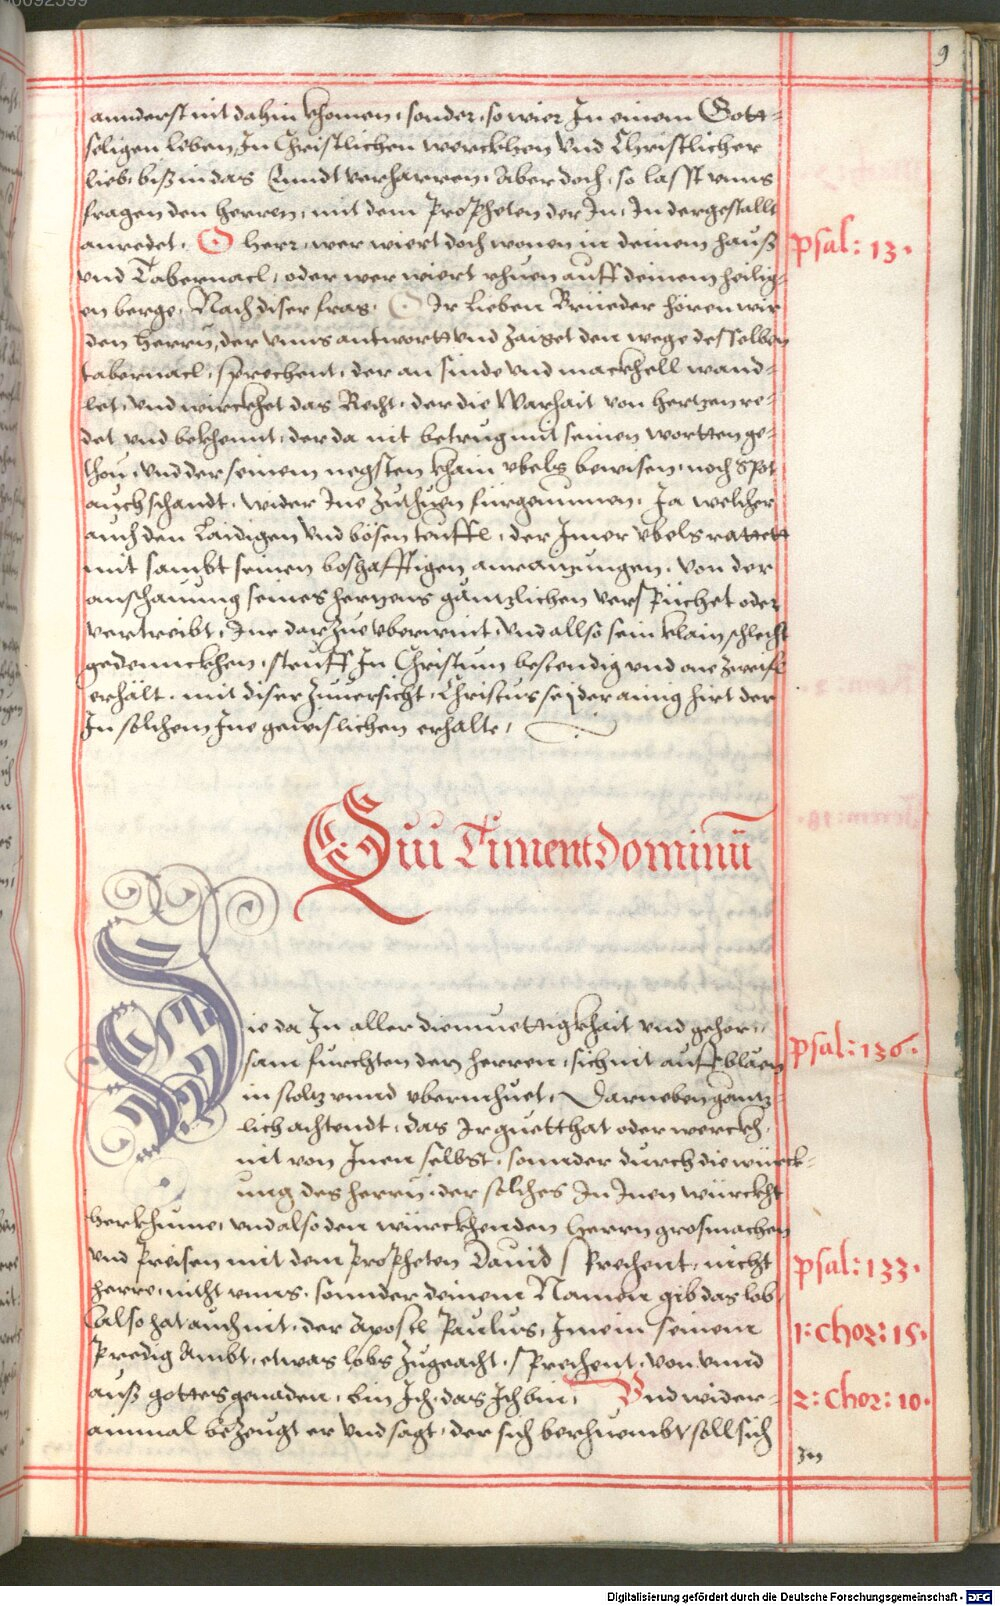 9
annderst nit dahin khomen, sonder, so wier In einem Gott-
seligen leben, In Christlichen werckhen vnd Christlicher
lieb, biß in das Enndt verharren. Aber doch, so lasst vnns
fragen den herren, mit dem propheten der In, In dergestallt
anredet. O herr, wer wiert doch wonen in deinem hauß
psal: 13.
vnd Tabernacl, oder wer wiert rhuen auff deinem heilig-
en berge. Nach diser frag. O Ir lieben Brüeder hören wir
den herrn, der vnns antwortt vnd zaiget den wege desselben
tabernacl, sprechent, der an sinde vnd mackhell wand-
let, vnd wirckhet das Recht, der die Warhait von hertzen re-
det vnd bekhennt, der da nit betrug mit seinen wortten ge-
thon, vnd der seinem negsten khain vbels bewisen, noch Spot
auch schandt, wider Ine zuthuen fürgenummen. Ja welcher
auch den Laidigen vnd bösen teuffl, der Imer vbels rattett
mit sambt seinen boshafftigen anraitzungen, von der
anschauung seines hertzens gäntzlichen verspüchet oder
vertreibt, Ine darzue vberwint, vnd allso sein klain schlecht
gedennckhen, steuff In Christum bestendig vnd one zweifl
erhält. mit diser zuuersicht, Christus sej der ainig hirt der
In solchem Ine gewislichen erhalte,
Qui Timent dominum
Die da In aller diemuettigkhait vnd gehor-
psal: 136.
sam furchten den herren, sich nit auffblaen
in stoltz vnnd vbermuet, Darneben gantz-
lich achtendt, das Ir guetthat oder werckh,
nit von Inen selbst, sonnder durch die würck-
ung des herrn, der solches In Inen würckht
herkhume, vnd also den würckhenden herrn grosmachen
vnd preisen mit dem propheten Dauid sprechent, nicht
psal: 133.
herre, nicht vnns, sonnder deinem Namen gib das lob
Also hat auch nit, der Apostl Paulus, Imein seinem
1: Chor: 15.
Predig Ambt, etwas lobs zugeacht, sprechent, von vnnd
auß gottes genaden, bin Ich, das Ich bin, Vnd wider-
2: Chor: 10.
ainmal bezeugt er vnd sagt, der sich berhuembt, soll sich
In
Digitalisierung gefördert durch die Deutsche Forschungsgemeinschaft - DFG